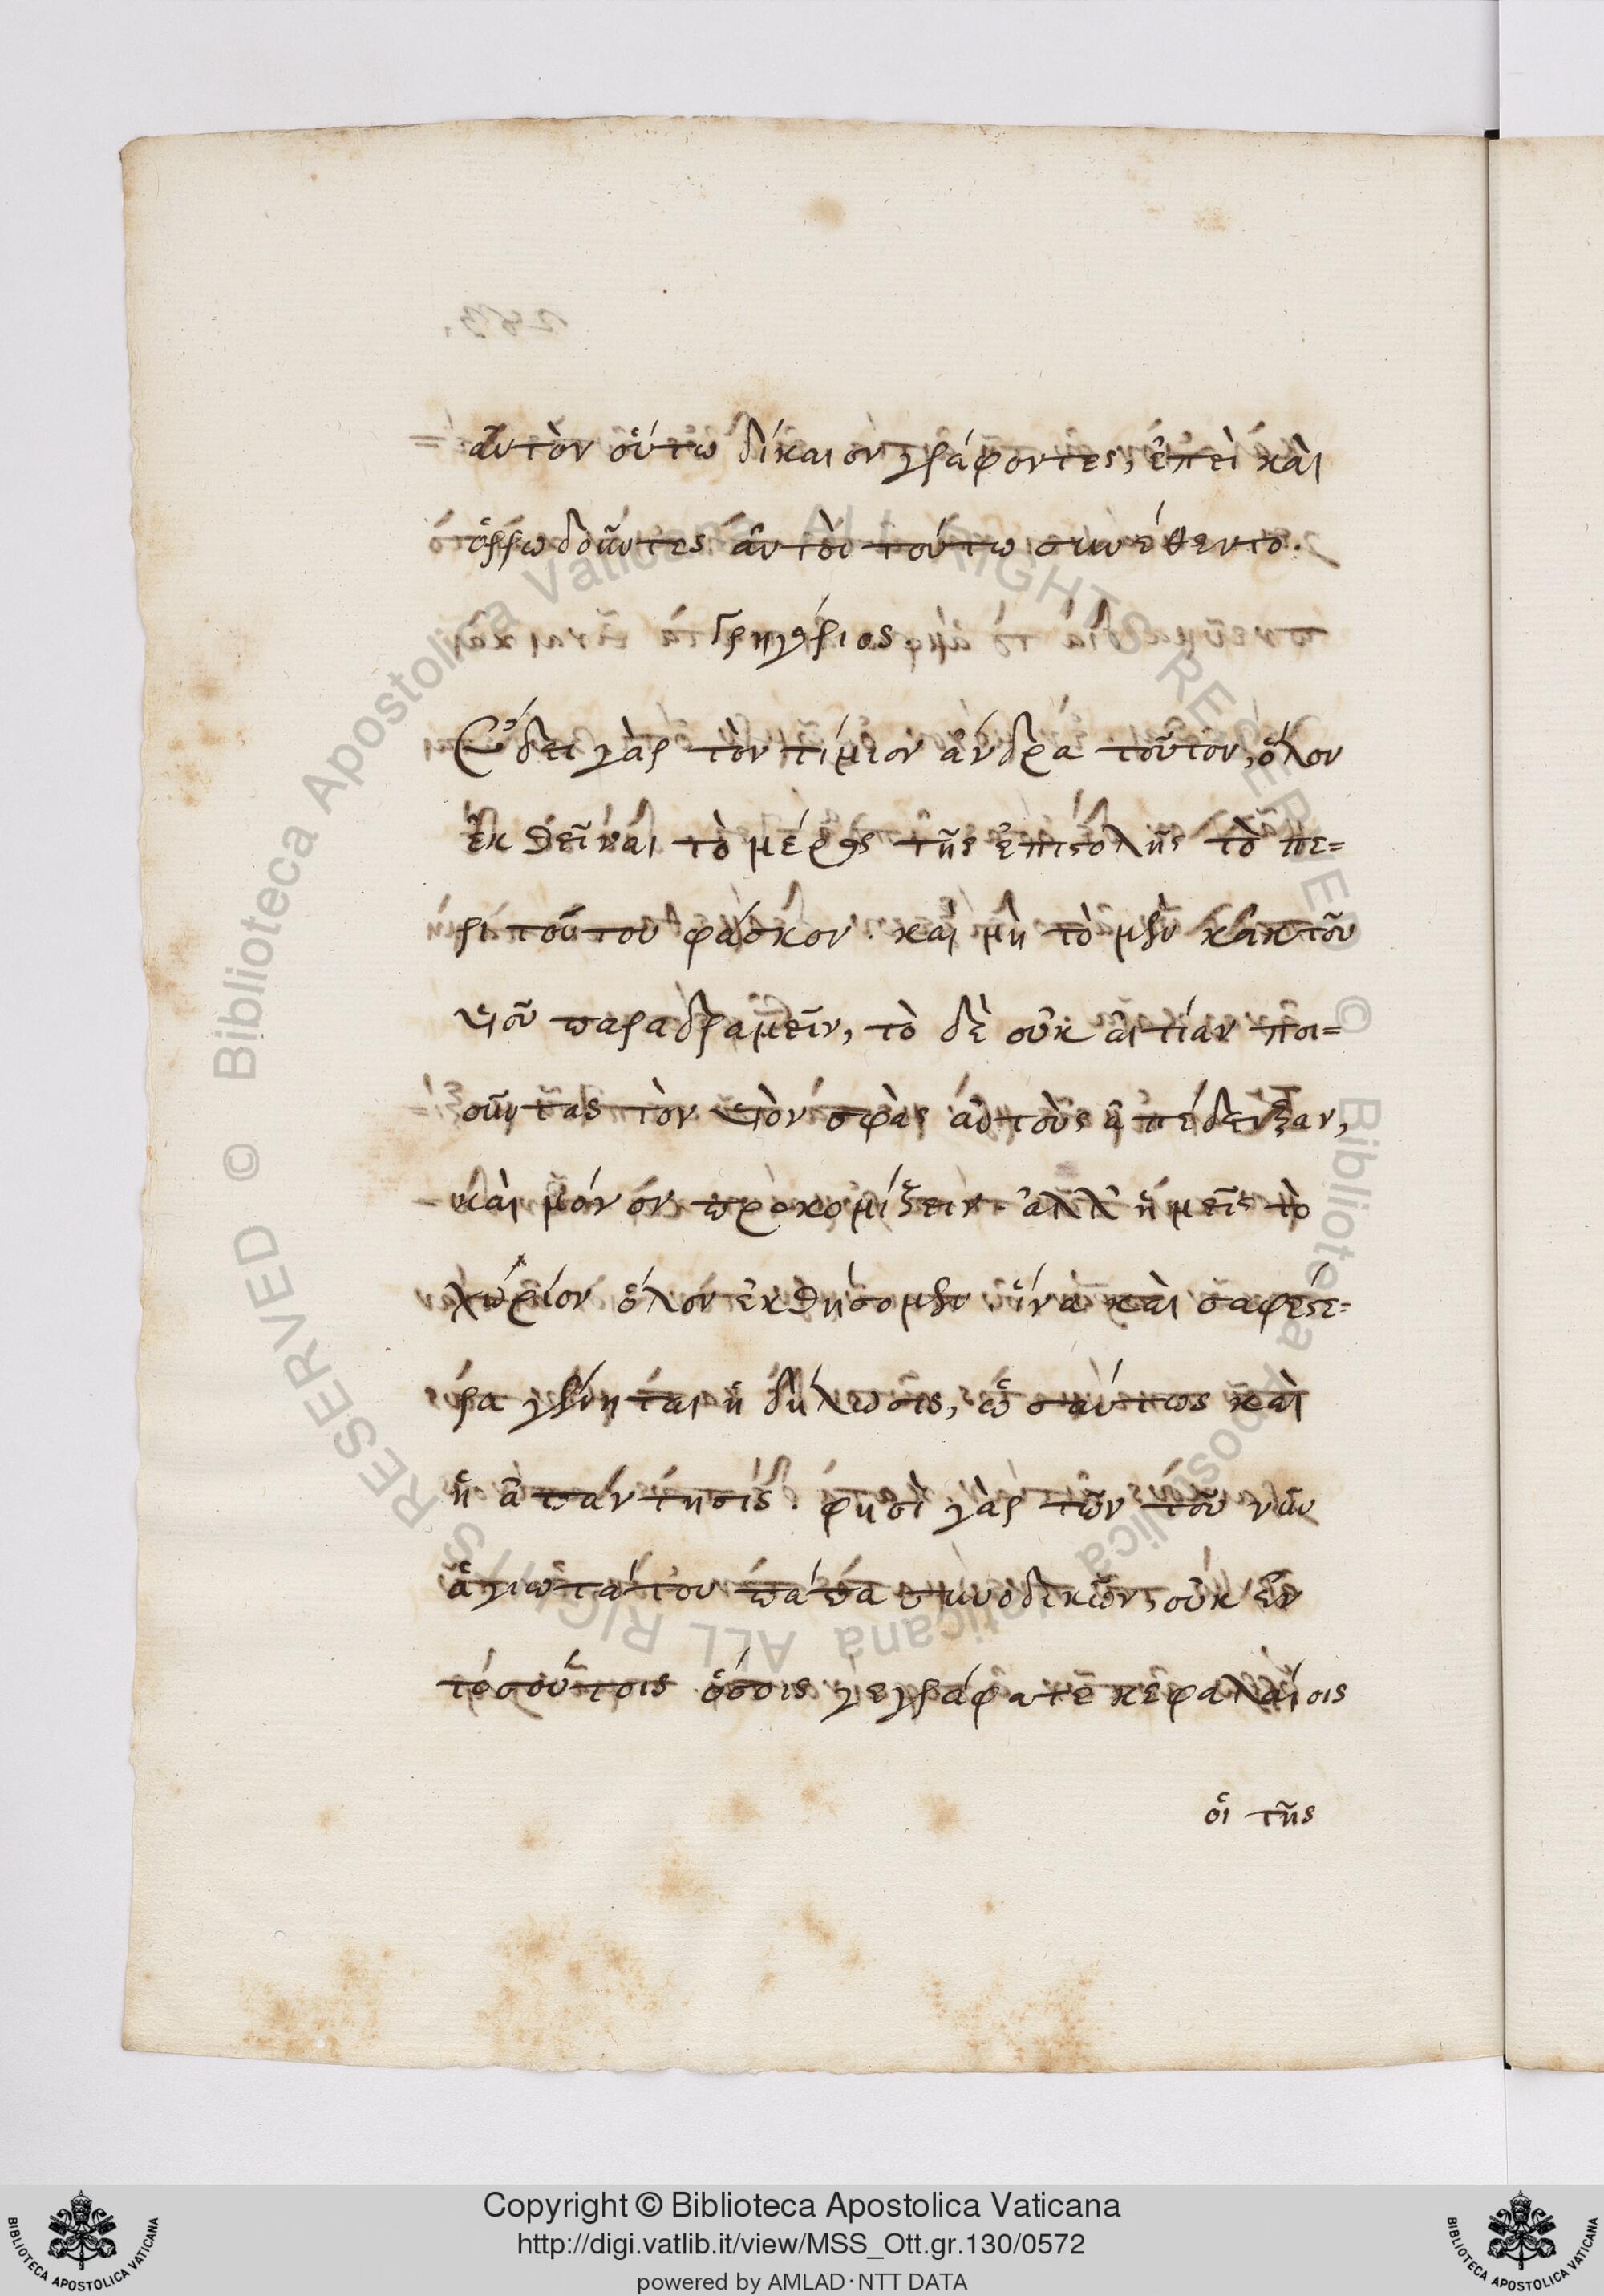 αὐτὸν οὕτω δίκαιον γράφοντες, ἐπεὶ καὶ
ὀῤῥωδοῦντες αὐτοὶ τούτω συνέθεντο.
Γρηγόριος.
Ἔδει γὰρ τὸν τίμιον ἄνδρα τοῦτον, ὅλον
ἐκθεῖναι τὸ μέρος τῆς ἐπιστολῆς τὸ πε=
ρὶ τούτου φάσκον. καὶ μὴ τὸ μὲν κἀκ τοῦ
υἱοῦ παραδραμεῖν, τὸ δὲ οὐκ αἰτίαν ποι=
οῦντας τὸν υἱὸν σφᾶς αὐτοὺς ἀπέδειξαν,
καὶ μόνον προκομίζειν. ἀλλ' ἡμεῖς τὸ
χωρίον ὅλον ἐκθήσομεν. ἵνα καὶ σαφεστέ=
ρα γένηται ἡ δήλωσις, ὡσαύτως καὶ
ἡ ἀπάντησις. φησὶ γὰρ τῶν τοῦ νῦν
ἁγιωτάτου πάπα συνοδικῶν, οὐκ ἐν
τοσούτοις ὅσοις γεγράφατε κεφαλαίοις
οἱ τῆς
Copyright © Biblioteca Apostolica Vaticana
http://digi.vatlib.it/view/MSS_Ott.gr.130/0572
powered by AMLAD·NTT DATA
BIBLIOTECA APOSTOLICA VATICANA
BIBLIOTECA APOSTOLICA VATICANA
© Biblioteca Apostolica Vaticana ALL RIGHTS RESERVED
© Biblioteca Apostolica Vaticana ALL RIGHTS RESERVED